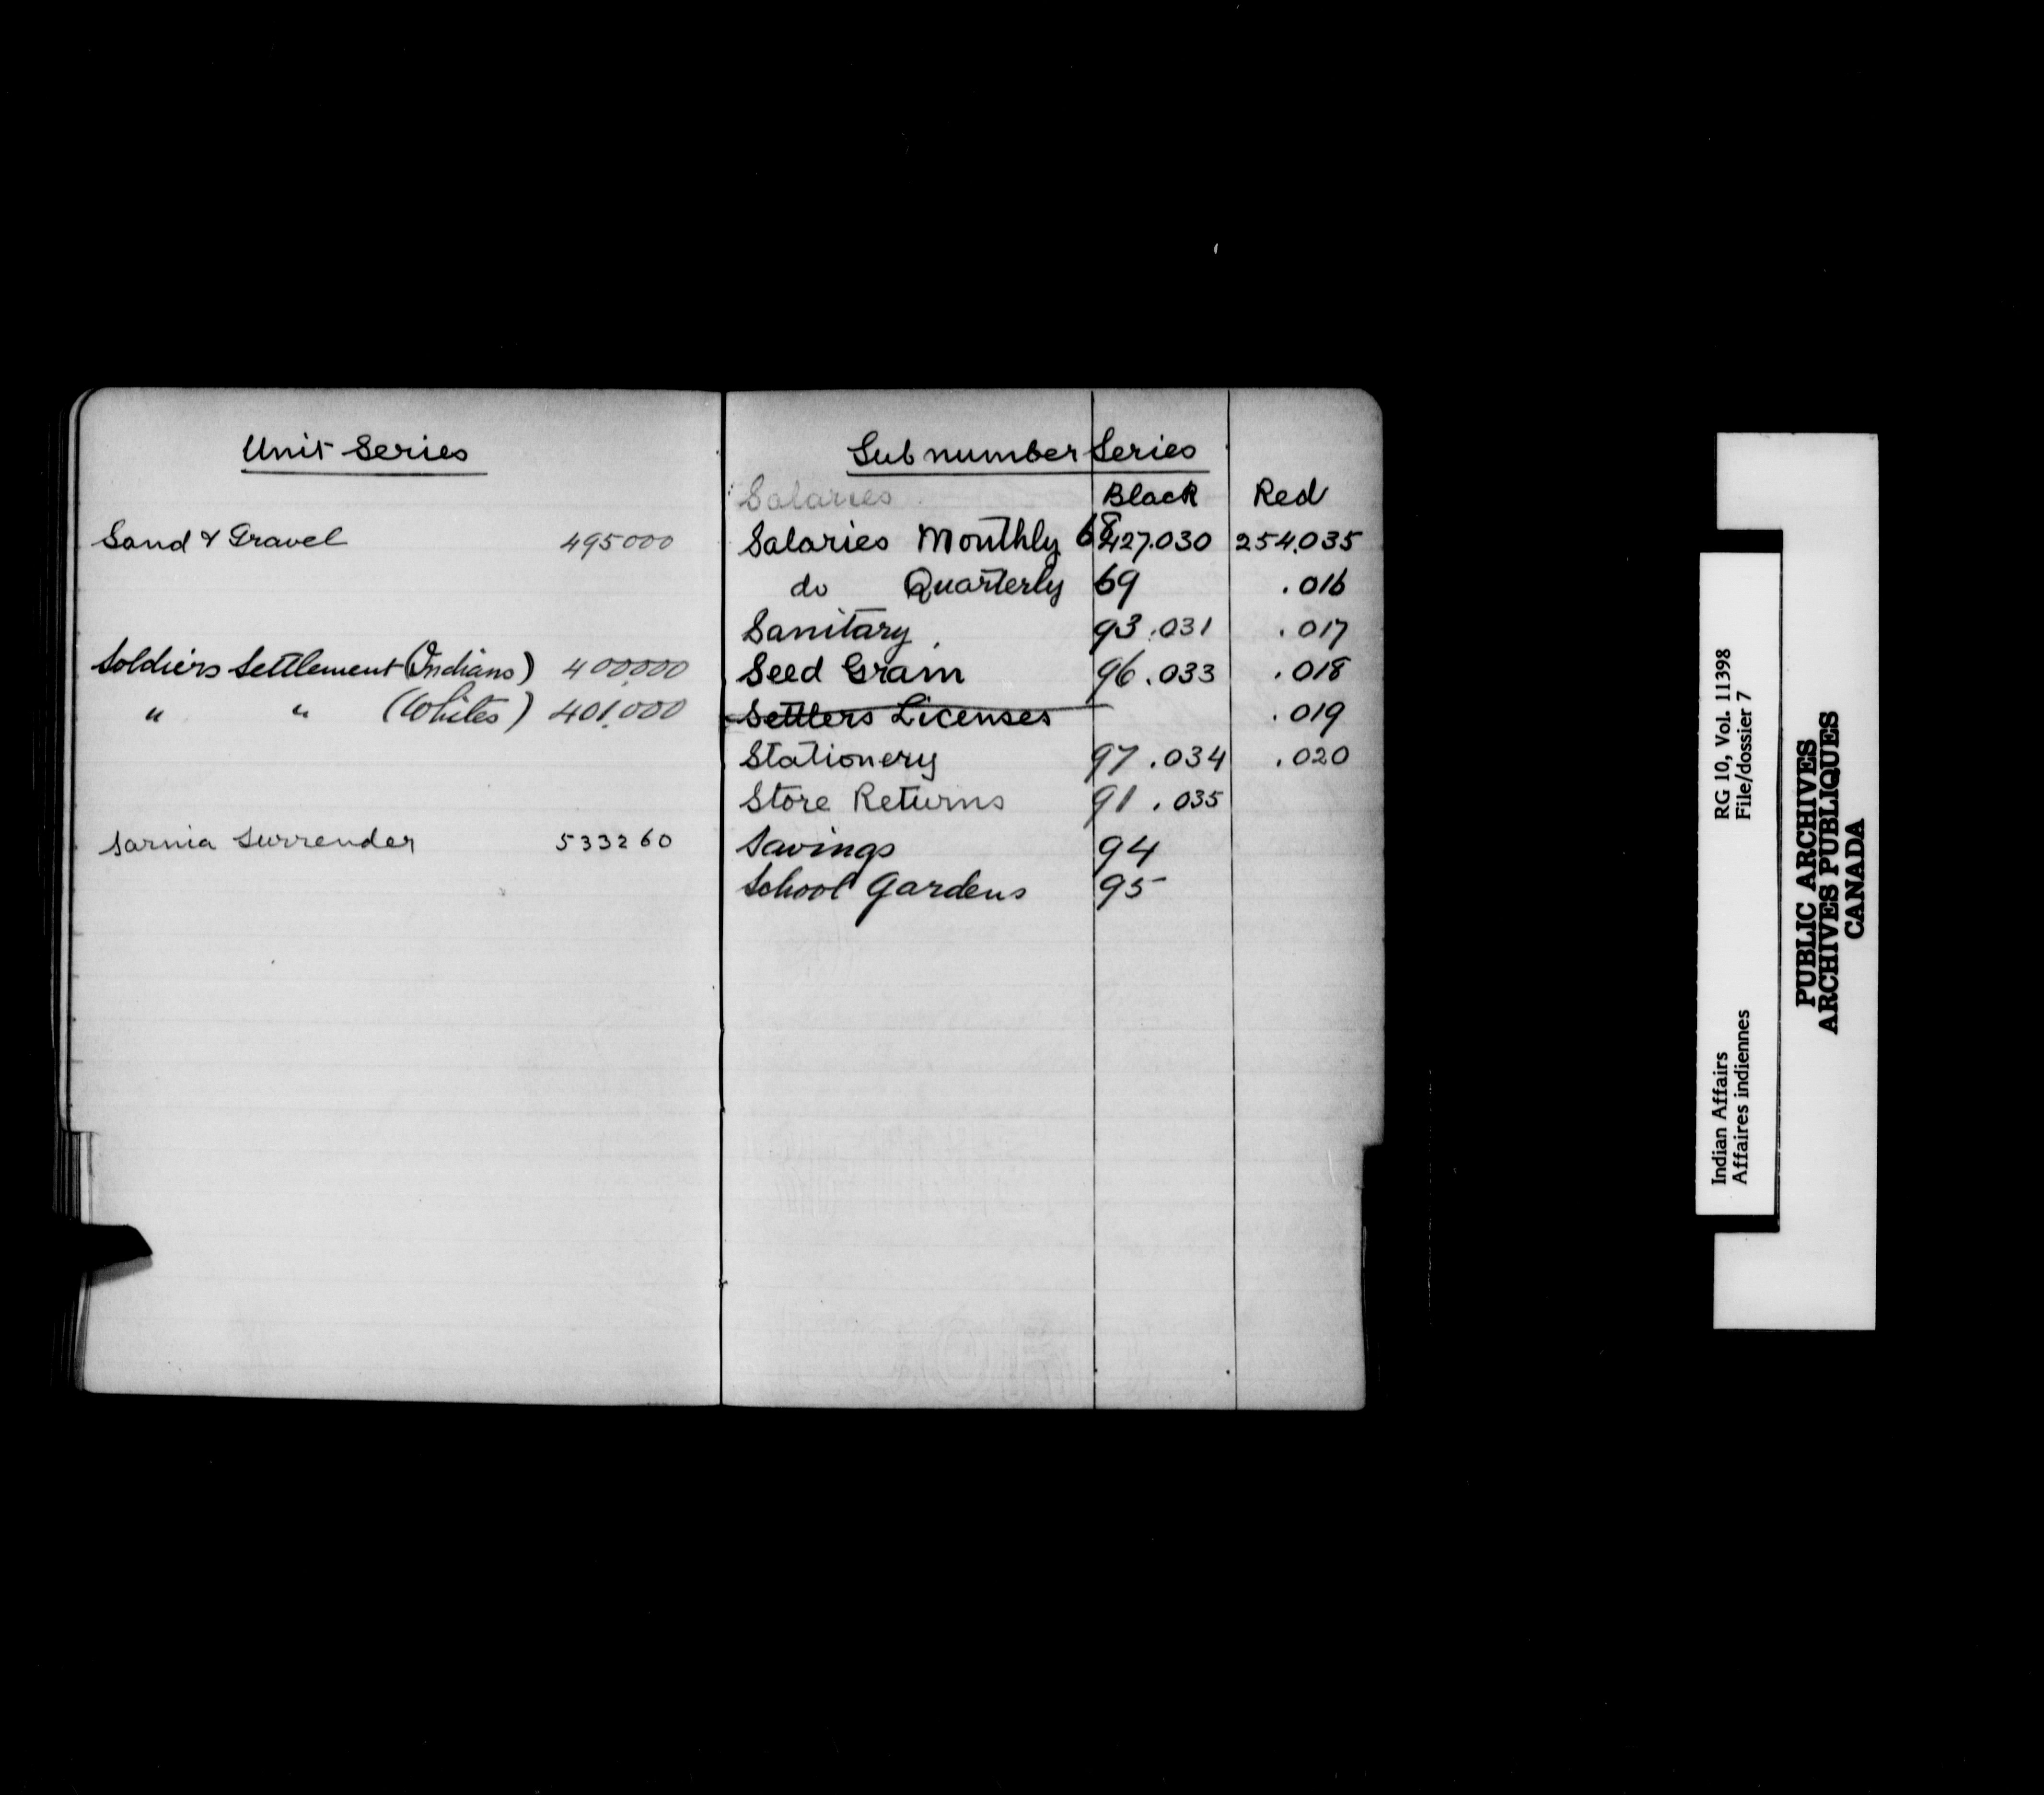 Unit Series
Sand & Gravel 495000
Soldiers Settlement (Indians) 400,000
" " (Whites) 401,000
Sarnia Surrender 533260
Sub number Series
Salaries Black Red
Salaries Monthly 68 427.030 254.035
do Quarterly 69 .016
Sanitary 93 .031 .017
Seed Grain 96 .033 .018
Settlers Licenses .019
Stationery 97 .034 .020
Store Returns 91 .035
Savings 94
School Gardens 95
Indian Affairs RG 10, Vol. 11398
Affaires indiennes File/dossier 7
PUBLIC ARCHIVES
ARCHIVES PUBLIQUES
CANADA